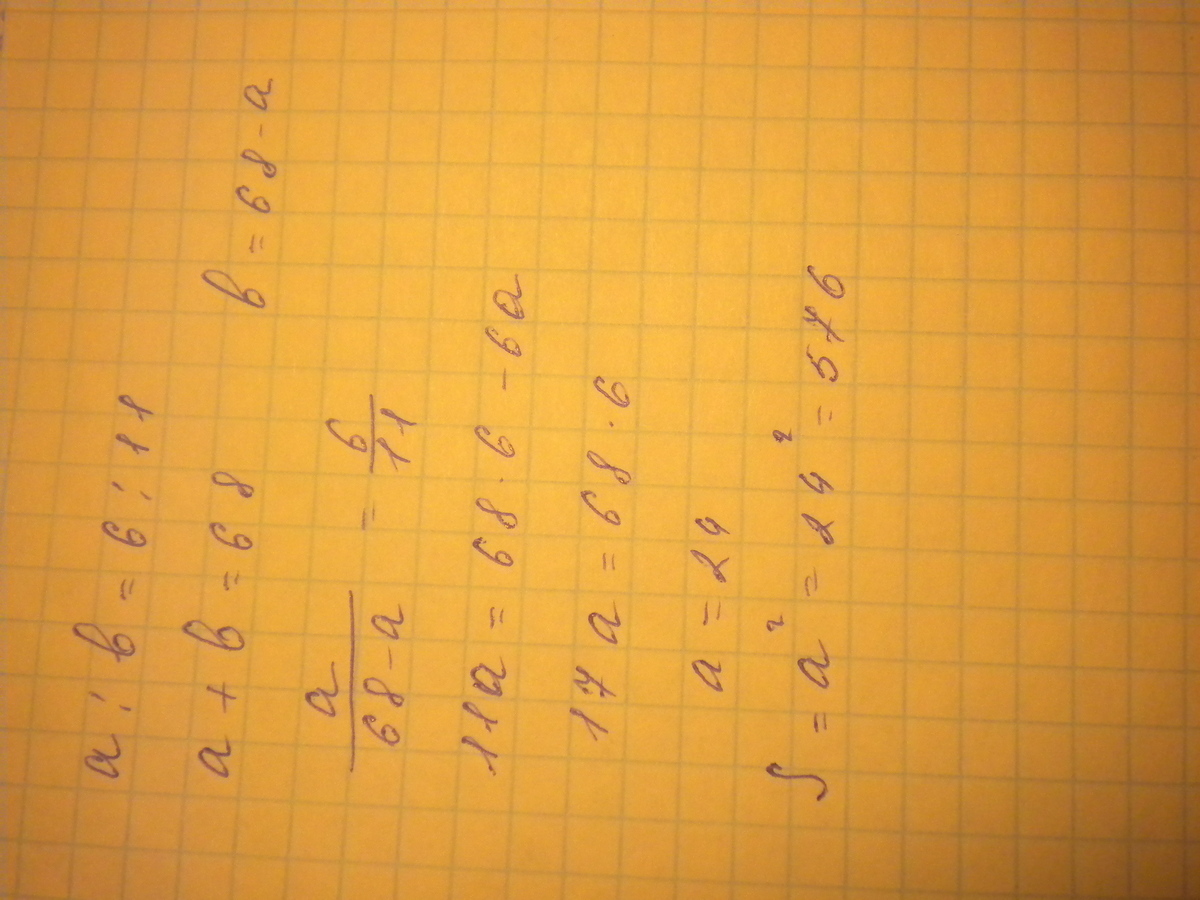 a : b = 6 : 11
a + b = 68 b = 68 - a
a/(68 - a) = 6/11
11a = 68 · 6 - 6a
17a = 68 · 6
a = 24
S = a² = 24² = 576